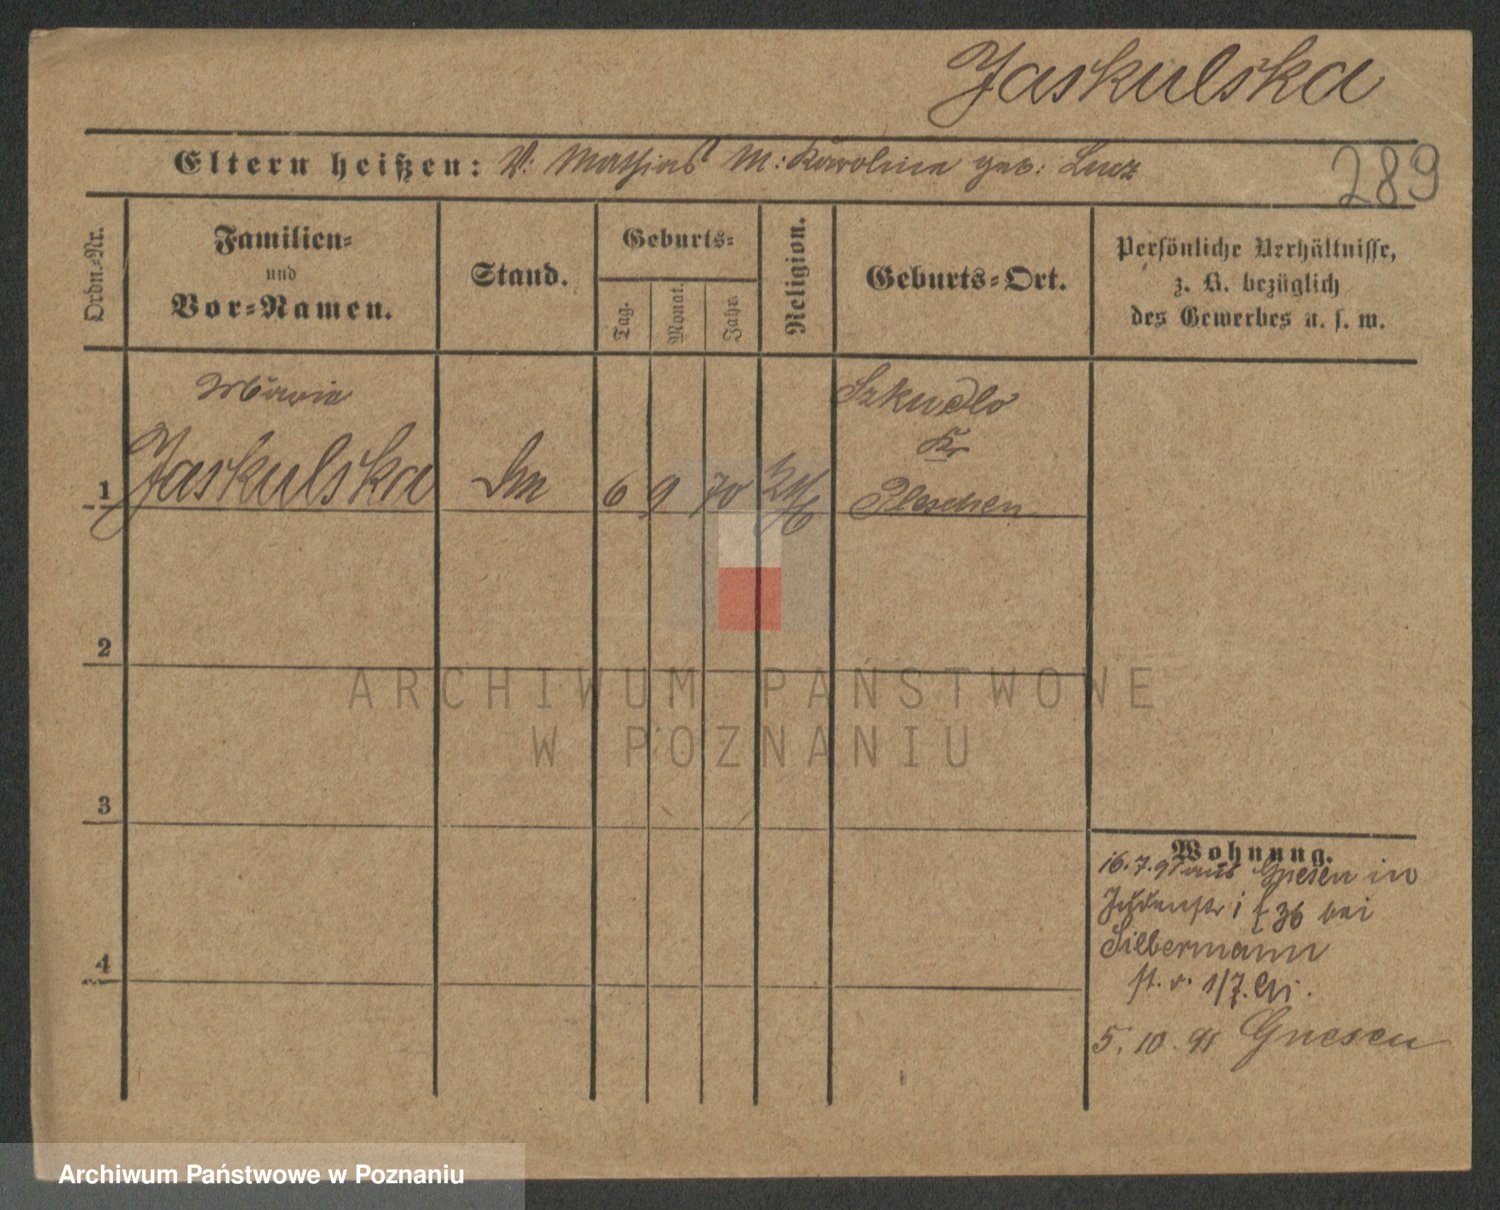 Jaskulska
Eltern heißen: V: Mathias M: Karoline geb: Lucz
289
Ordn.-Nr.
Familien-
und
Vor-Namen.
Stand.
Geburts-
Tag.
Monat.
Jahr.
Religion.
Geburts-Ort.
Persönliche Verhältnisse,
z. B. bezüglich
des Gewerbes u. s. w.
Marie
1 Jaskulska 6 9 70
Szkudlo
Kr
Pleschen
2
3
4
Wohnung.
16.7.91 aus Gnesen in
36 bei
Silbermann
1/7.
5.10.91 Gnesen
ARCHIWUM PAŃSTWOWE
W POZNANIU
Archiwum Państwowe w Poznaniu